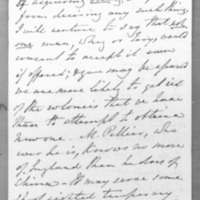 of acquiring
from desiring any such thing
I will venture to say that not
one man, Whig or Tory, would
consent to accept it even
if offered; & you may be assured
we are more likely to get rid
of the colonies that we have
than to attempt to obtain
new one. M. Pellier,
who he is, knows no more
of England than
China - It may serve some
temporary